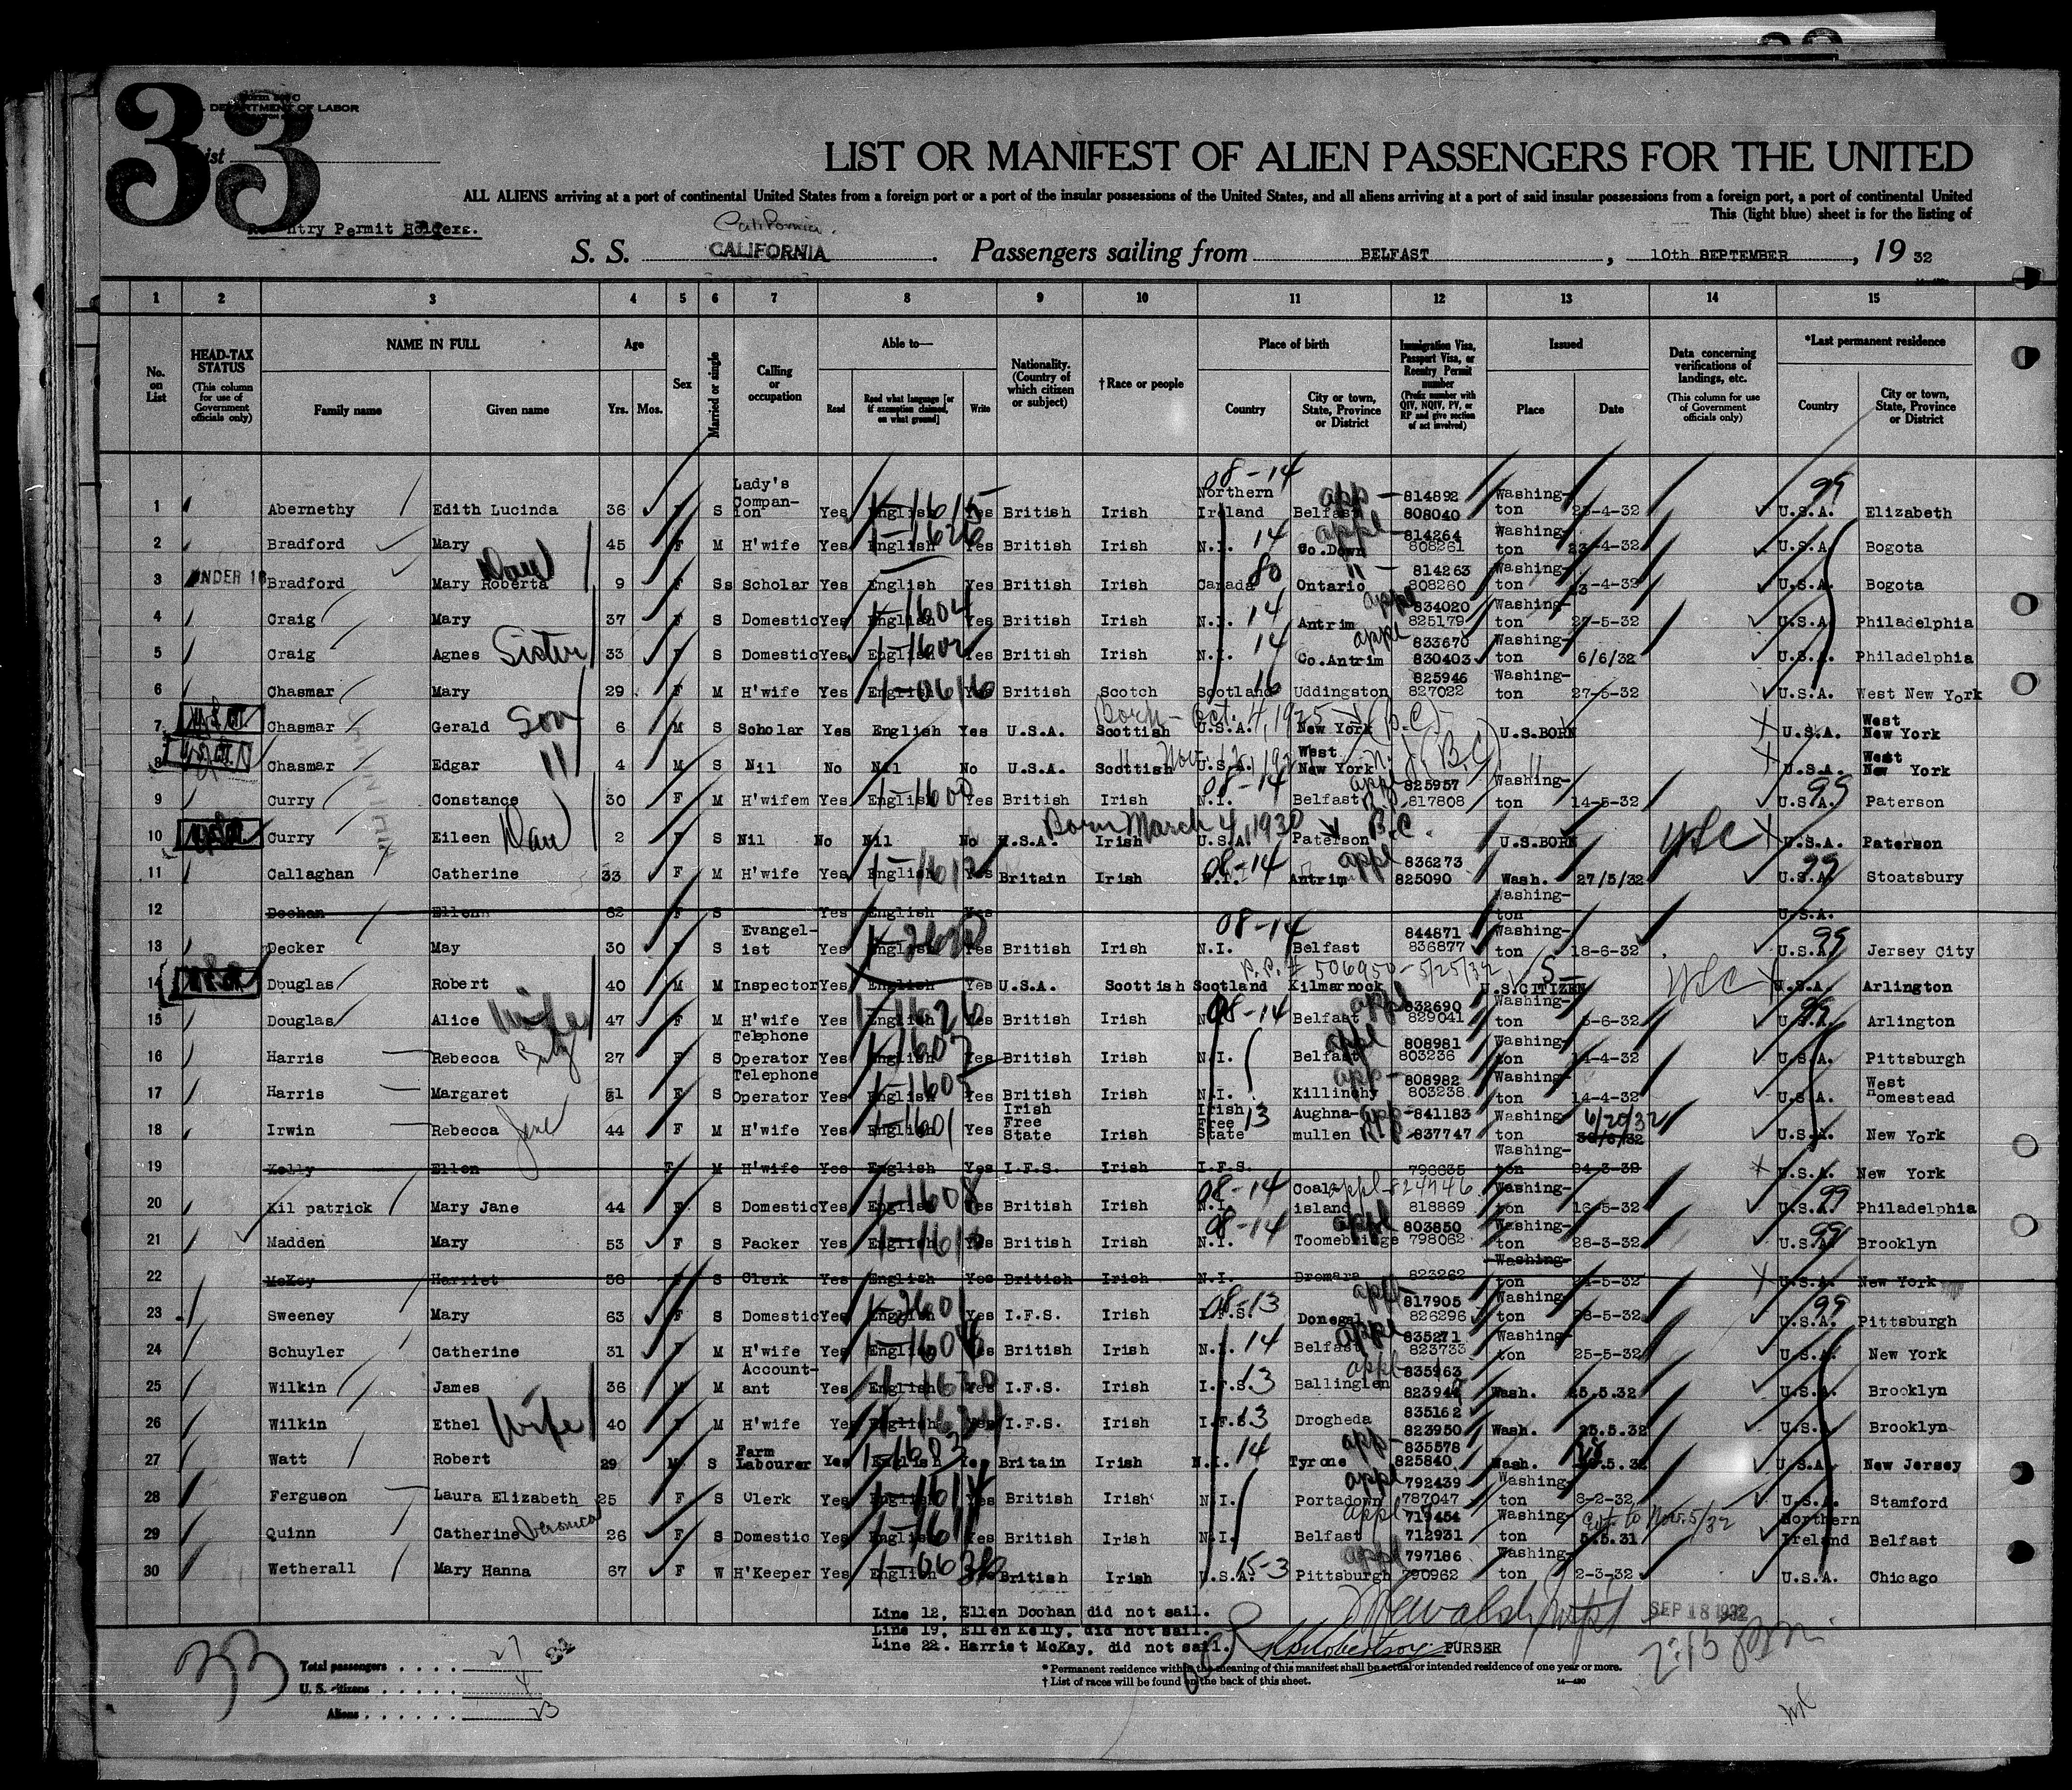 33
Form 500 C
DEPARTMENT OF LABOR
List
LIST OR MANIFEST OF ALIEN PASSENGERS FOR THE UNITED
ALL ALIENS arriving at a port of continental United States from a foreign port or a port of the insular possessions of the United States, and all aliens arriving at a port of said insular possessions from a foreign port, a port of continental United
This (light blue) sheet is for the listing of
Re-entry Permit Holders.
California.
S. S. CALIFORNIA. Passengers sailing from BELFAST, 10th SEPTEMBER, 19 32
1 2 3 4 5 6 7 8 9 10 11 12 13 14 15
No. on List
HEAD-TAX STATUS (This column for use of Government officials only)
NAME IN FULL Family name Given name
Age Yrs. Mos.
Sex
Married or single
Calling or occupation
Able to— Read Read what language [or if exemption claimed, on what ground] Write
Nationality. (Country of which citizen or subject)
†Race or people
Place of birth Country City or town, State, Province or District
Immigration Visa, Passport Visa, or Reentry Permit number (Prefix number with QIV, NQIV, PV, or RP and give section of act involved)
Issued Place Date
Data concerning verifications of landings, etc. (This column for use of Government officials only)
*Last permanent residence Country City or town, State, Province or District
1 Abernethy Edith Lucinda 36 F S Lady's Companion Yes English Yes British Irish Northern Ireland Belfast 814892 808040 Washington -4-32 U.S.A. Elizabeth
2 Bradford Mary 45 F M H'wife Yes English Yes British Irish N.I. Co.Down 814264 808261 Washington 23-4-32 U.S.A. Bogota
3 UNDER 16 Bradford Mary Roberta Dau 9 F Ss Scholar Yes English Yes British Irish Canada Ontario 814263 808260 Washington -4-32 U.S.A. Bogota
4 Craig Mary 37 F S Domestic Yes English Yes British Irish N.I. Antrim 834020 825179 Washington 27-5-32 U.S.A. Philadelphia
5 Craig Agnes Sister 33 F S Domestic Yes English Yes British Irish N.I. Co.Antrim 833670 830403 Washington 6/6/32 U.S.A. Philadelphia
6 Chasmar Mary 29 F M H'wife Yes English Yes British Scotch Scotland Uddingston 825946 827022 Washington 27-5-32 U.S.A. West New York
7 Chasmar Gerald Son 6 M S Scholar Yes English Yes U.S.A. Scottish Born - Oct. 4, 1925 U.S.A. New York (B.C.) U.S.BORN U.S.A. West New York
8 Chasmar Edgar " 4 M S Nil No Nil No U.S.A. Scottish U.S.A. West New York N.J. (B.C.) " U.S.A. West New York
9 Curry Constance 30 F M H'wifem Yes English Yes British Irish N.I. Belfast 825957 817808 Washington 14-5-32 U.S.A. Paterson
10 Curry Eileen Dau 2 F S Nil No Nil No U.S.A. Irish Born March 4, 1930 U.S.A. Paterson B.C. U.S.BORN U.S.A. Paterson
11 Callaghan Catherine 33 F M H'wife Yes English Yes Britain Irish N.I. Antrim 836273 825090 Wash. 27/5/32 U.S.A. Stoatsbury
12 Doohan Ellen 62 F S Yes English Yes Washington U.S.A.
13 Decker May 30 F S Evangelist Yes English Yes British Irish N.I. Belfast 844871 836877 Washington 18-6-32 U.S.A. Jersey City
14 Douglas Robert 40 M M Inspector Yes English Yes U.S.A. Scottish Scotland Kilmarnock P.P. # 506950 - 5/25/32 U.S.CITIZEN U.S.A. Arlington
15 Douglas Alice Wife 47 F M H'wife Yes English Yes British Irish N.I. Belfast 832690 829041 Washington -6-32 U.S.A. Arlington
16 Harris Rebecca Ruby 27 F S Telephone Operator Yes English Yes British Irish N.I. Belfast 808981 803236 Washington 14-4-32 U.S.A. Pittsburgh
17 Harris Margaret Jane 51 F S Telephone Operator Yes English Yes British Irish N.I. Killinchy 808982 803238 Washington 14-4-32 U.S.A. West Homestead
18 Irwin Rebecca 44 F M H'wife Yes English Yes Irish Free State Irish Irish Free State Aughnamullen 841183 837747 Washington 6/20/32 U.S.A. New York
19 Kelly Ellen F M H'wife Yes English Yes I.F.S. Irish I.F.S. 798635 Washington U.S.A. New York
20 Kil patrick Mary Jane 44 F S Domestic Yes English Yes British Irish N.I. Coalisland appl 824746 818869 Washington 16-5-32 U.S.A. Philadelphia
21 Madden Mary 53 F S Packer Yes English Yes British Irish N.I. Toomebridge 803850 798062 Washington 28-3-32 U.S.A. Brooklyn
22 McKay Harriet F S Clerk Yes English Yes British Irish N.I. Dromara 823262 Washington -5-32 U.S.A. New York
23 Sweeney Mary 63 F S Domestic Yes English Yes I.F.S. Irish I.F.S. Donegal 817905 826296 Washington -5-32 U.S.A. Pittsburgh
24 Schuyler Catherine 31 F M H'wife Yes English Yes British Irish N.I. Belfast 835271 823733 Washington 25-5-32 U.S.A. New York
25 Wilkin James 36 M M Accountant Yes English Yes I.F.S. Irish I.F.S. Ballinglen 835963 Wash. 25.5.32 U.S.A. Brooklyn
26 Wilkin Ethel Wife 40 F M H'wife Yes English Yes I.F.S. Irish I.F.S. Drogheda 835162 823950 Wash. 25.5.32 U.S.A. Brooklyn
27 Watt Robert 29 M S Farm Labourer Yes English Yes Britain Irish N.I. Tyrone 835578 825840 Wash. .5.32 U.S.A. New Jersey
28 Ferguson Laura Elizabeth 25 F S Clerk Yes English Yes British Irish N.I. Portadown 792439 787047 Washington 8-2-32 U.S.A. Stamford
29 Quinn Catherine Veronica 26 F S Domestic Yes English Yes British Irish N.I. Belfast 719454 712931 Washington 5.5.31 Ext. to Nov. 5/32 Northern Ireland Belfast
30 Wetherall Mary Hanna 67 F W H'Keeper Yes English Yes British Irish U.S.A. Pittsburgh 797186 790962 Washington 2-3-32 U.S.A. Chicago
Line 12, Ellen Doohan did not sail.
Line 19, Ellen Kelly, did not sail.
Line 22. Harriet McKay, did not sail.
PURSER
SEP 18 1932
2:15 pm
33
Total passengers . . . . 27
U. S. citizens . . . . . 4
Aliens . . . . . . 23
* Permanent residence within the meaning of this manifest shall be actual or intended residence of one year or more.
† List of races will be found on the back of this sheet.
14—430